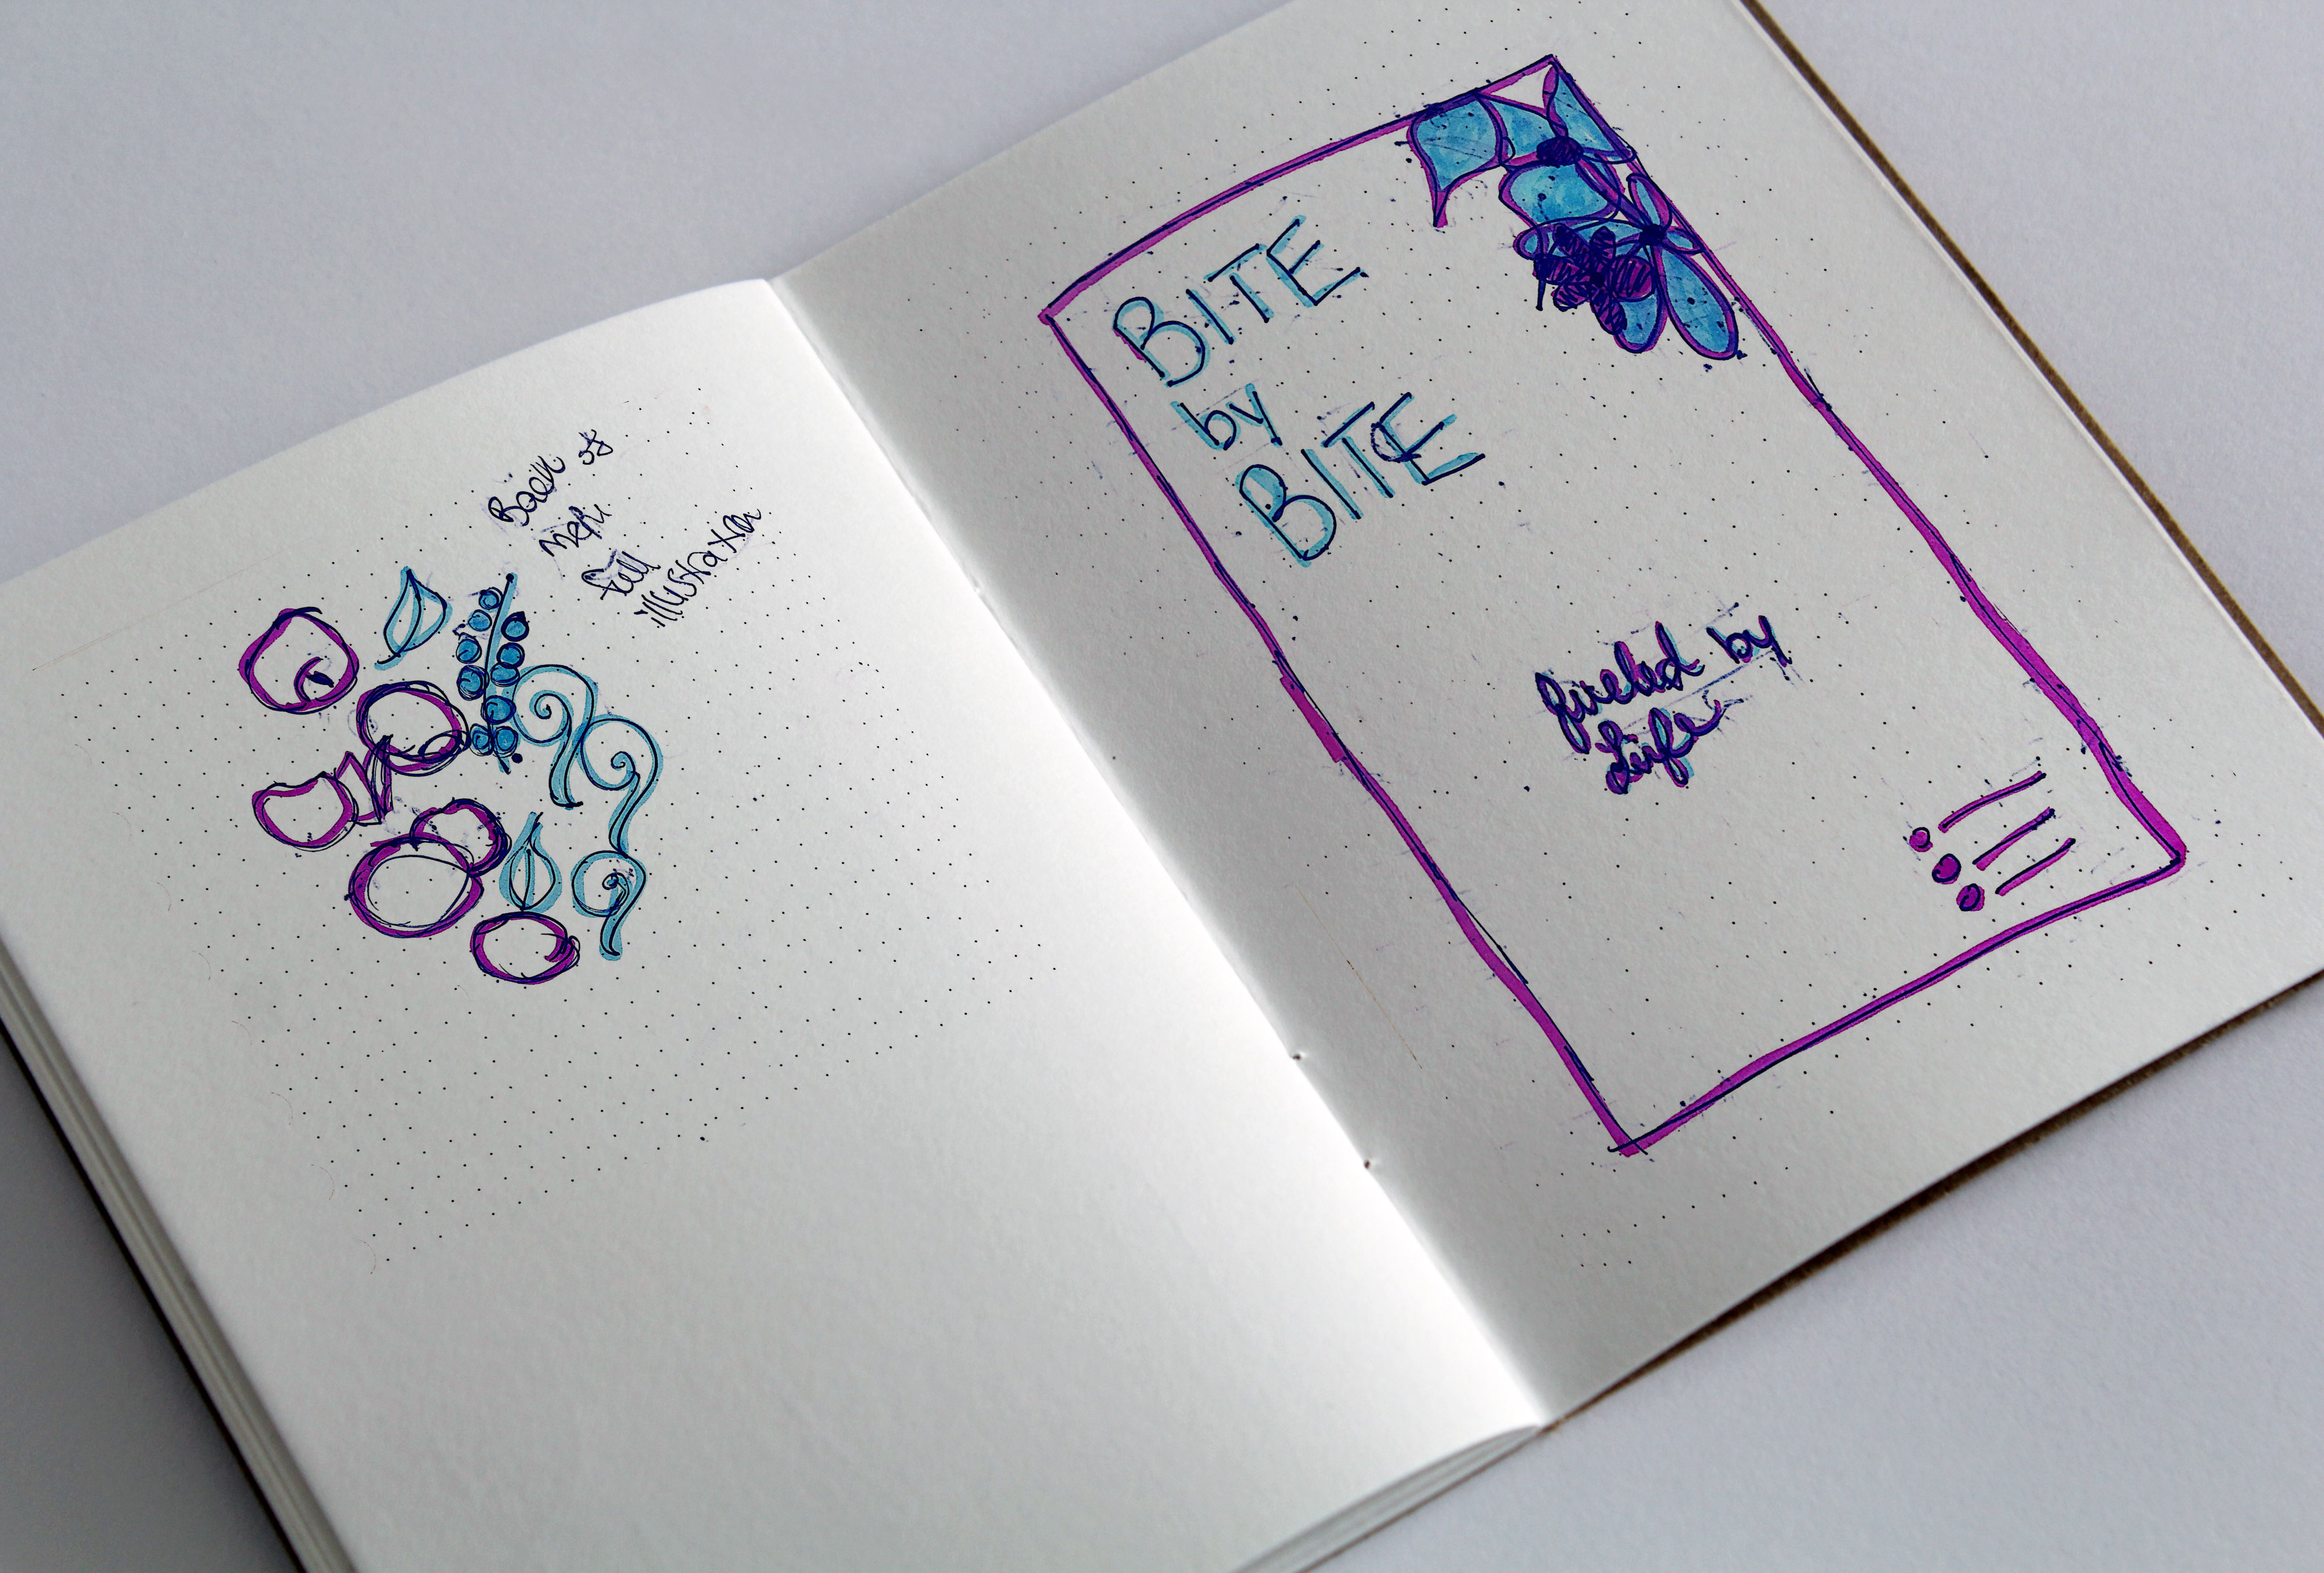 Book of
full
illustration
BITE
by
BITE
fueled by
Life